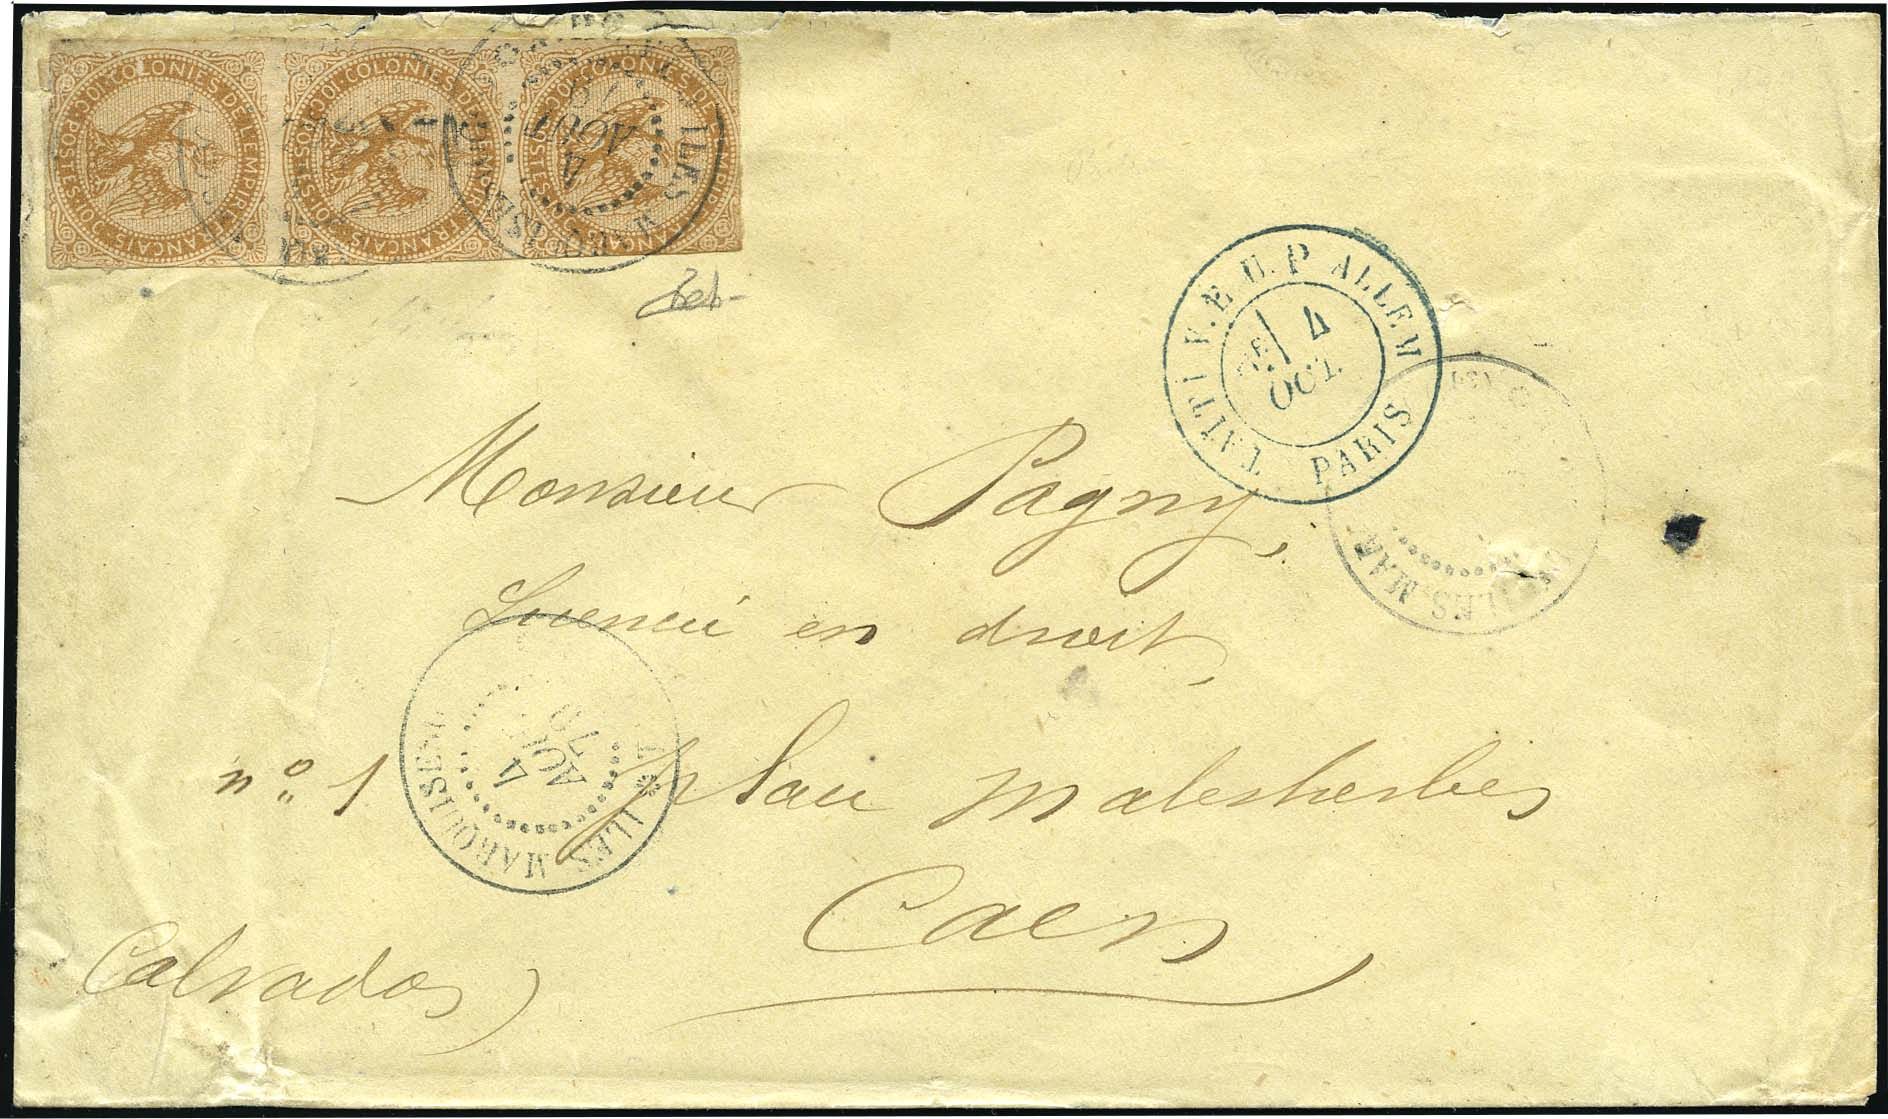 COLONIES DE L'EMPIRE FRANÇAIS POSTES 10C
COLONIES DE L'EMPIRE FRANÇAIS POSTES 10C
COLONIES DE L'EMPIRE FRANÇAIS POSTES 10C
ILES MARQUISES
4
AOUT
TAITI F. E. U. P ALLEM
4
OCT.
PARIS
ILES MAR
Monsieur Pagny,
Licencié en droit,
n° 1 place Malesherbes
Caen
Calvados)
ILES MARQUISES
4
AOUT
76